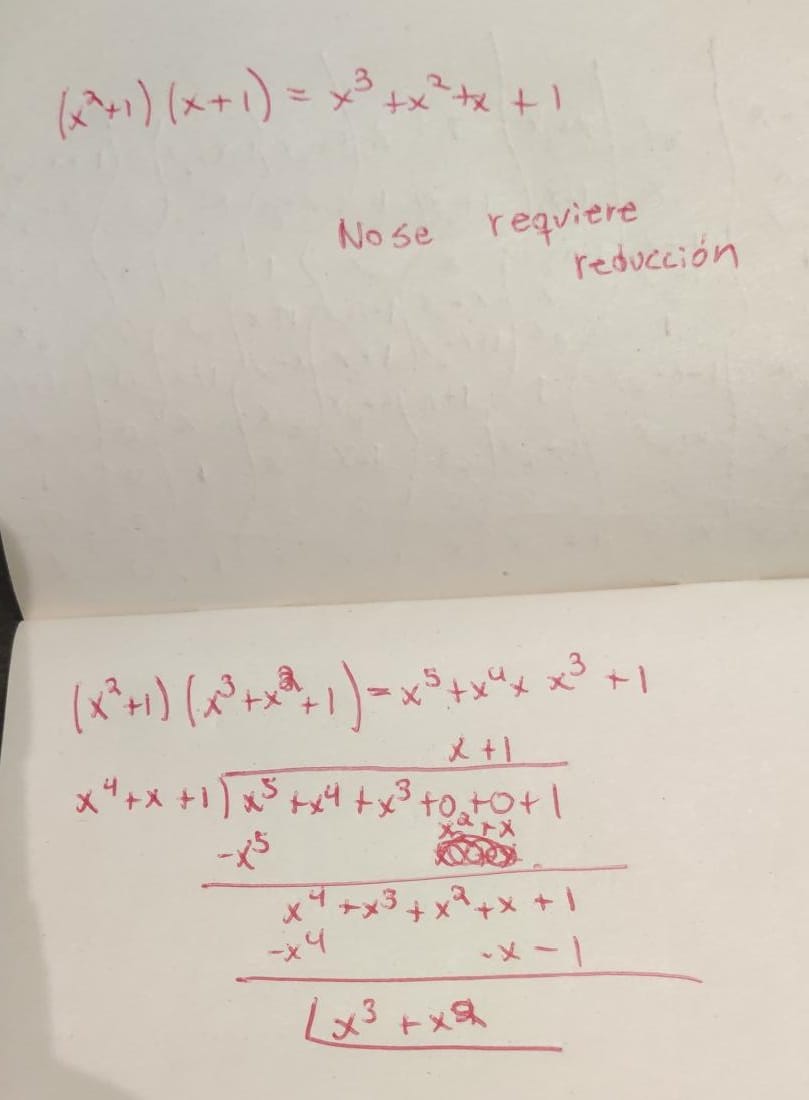 (x²+1) (x+1) = x³ +x² +x + 1
No se requiere
reducción
(x²+1) (x³+x²+1) = x⁵+x⁴+ x³ +1
x +1
x⁴+x +1) x⁵ +x⁴ +x³ +0 +0 +1
x²+x
-x⁵
x⁴ +x³ + x² +x +1
-x⁴ -x -1
x³ +x²